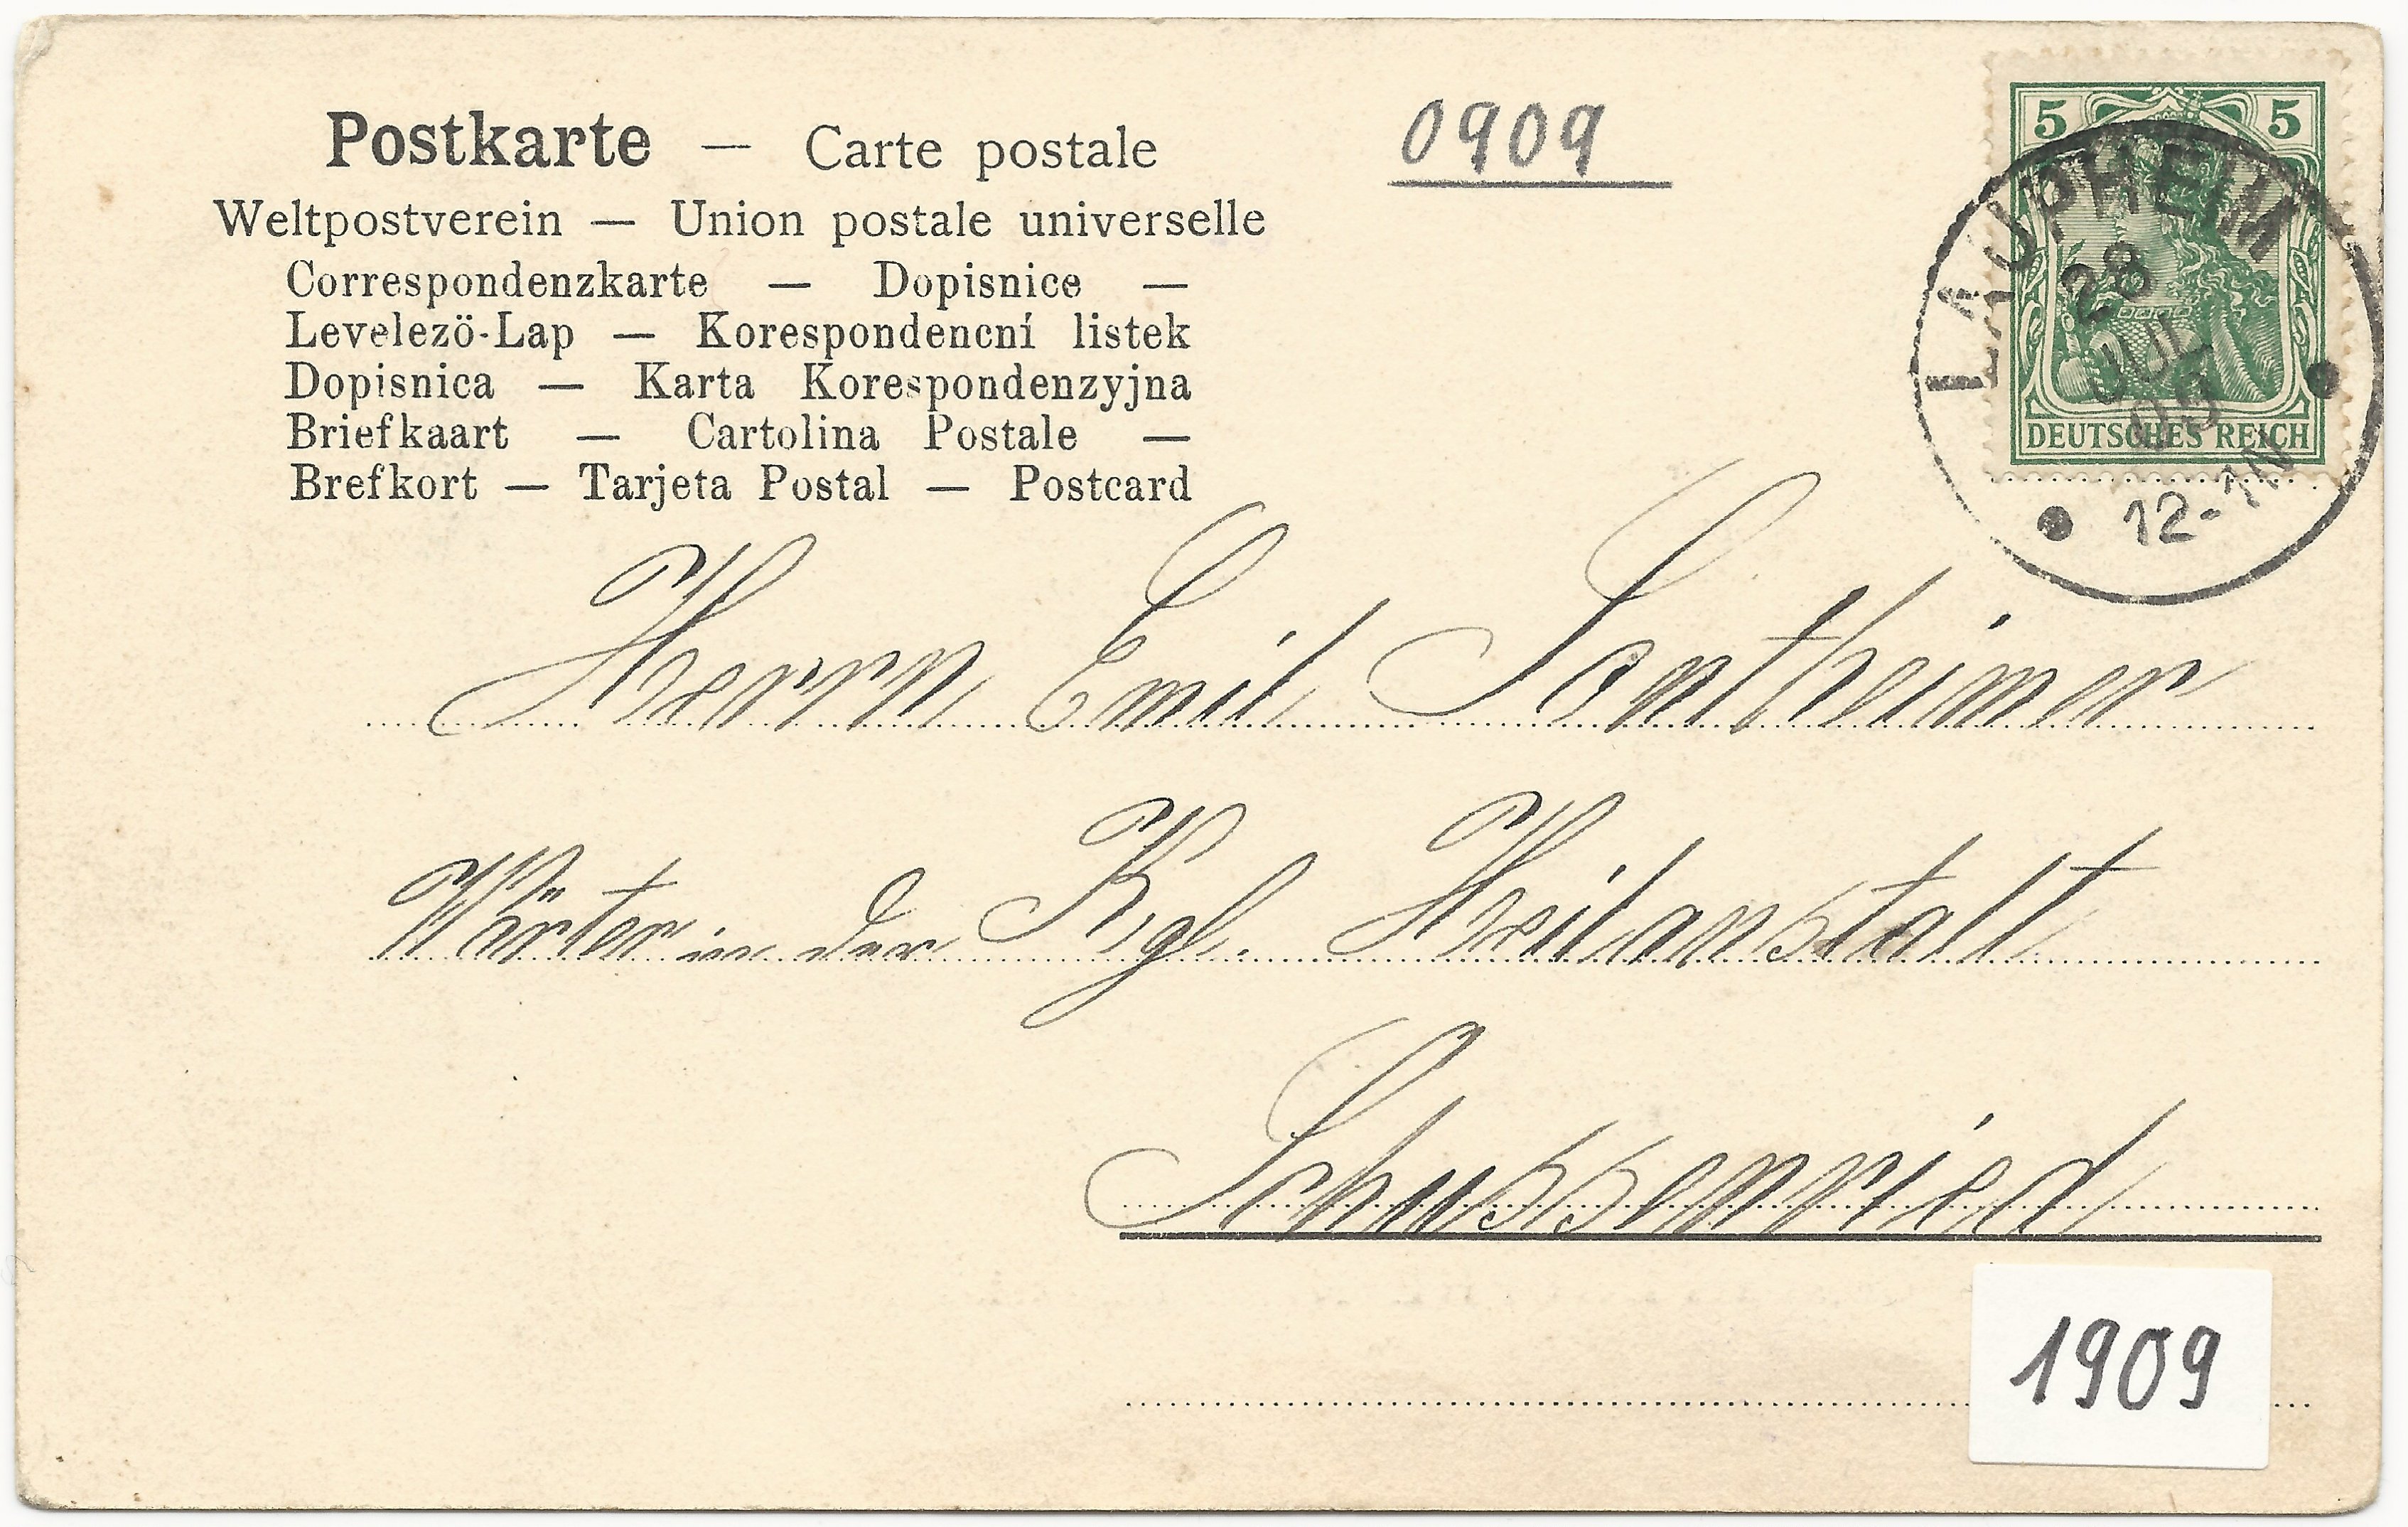 Postkarte — Carte postale
Weltpostverein — Union postale universelle
Correspondenzkarte — Dopisnice —
Levelezö-Lap — Korespondencní listek
Dopisnica — Karta Korespondenzyjna
Briefkaart — Cartolina Postale —
Brefkort — Tarjeta Postal — Postcard
0909
5 5
DEUTSCHES REICH
LAUPHEIM
28
JUL
09
12-1N
Herrn Emil Sontheimer
Wärter in der Kgl. Heilanstalt
Schussenried
1909